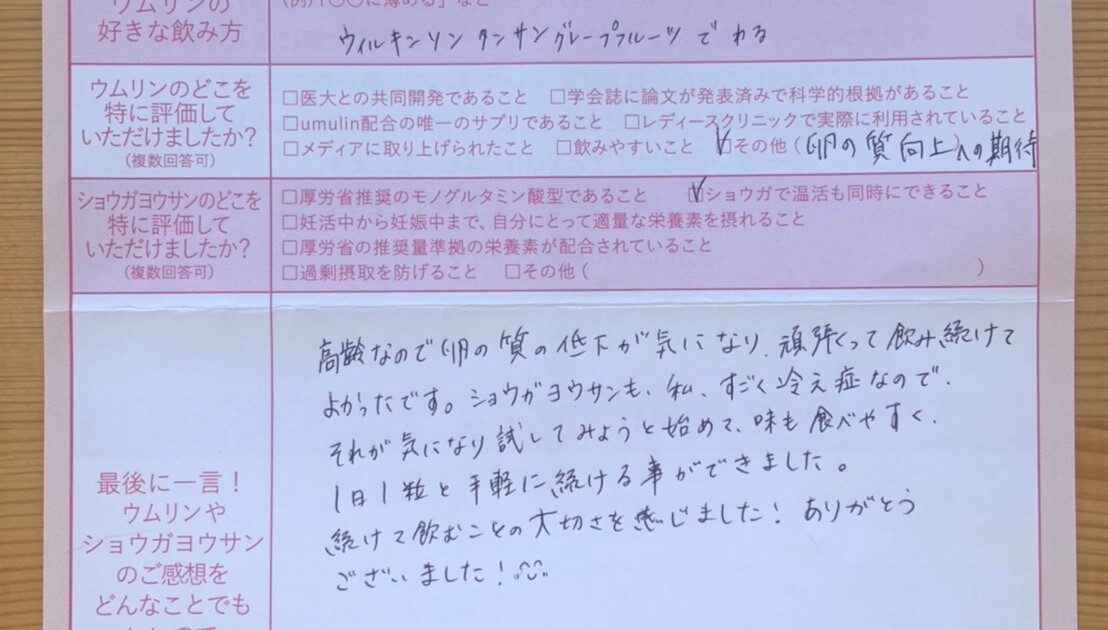 ウムリンの
好きな飲み方
ウィルキンソン タンサングレープフルーツ でわる
ウムリンのどこを
特に評価して
いただけましたか?
(複数回答可)
□医大との共同開発であること □学会誌に論文が発表済みで科学的根拠があること
□umulin配合の唯一のサプリであること □レディースクリニックで実際に利用されていること
□メディアに取り上げられたこと □飲みやすいこと □その他(卵の質向上)への期待
ショウガヨウサンのどこを
特に評価して
いただけましたか?
(複数回答可)
□厚労省推奨のモノグルタミン酸型であること □ショウガで温活も同時にできること
□妊活中から妊娠中まで、自分にとって適量な栄養素を摂れること
□厚労省の推奨量準拠の栄養素が配合されていること
□過剰摂取を防げること □その他( )
最後に一言!
ウムリンや
ショウガヨウサン
のご感想を
どんなことでも
高齢なので卵の質の低下が気になり、頑張って飲み続けて
よかったです。ショウガヨウサンも、私、すごく冷え症なので、
それが気になり試してみようと始めて、味も食べやすく、
1日1粒と手軽に続ける事ができました。
続けて飲むことの大切さを感じました!ありがとう
ございました!